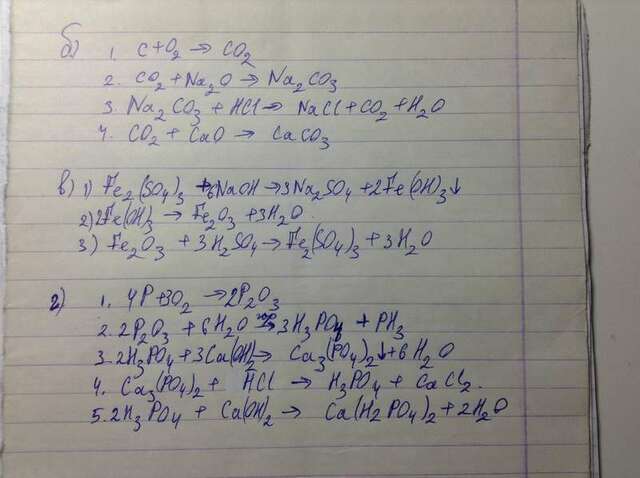 б) 1. C+O₂ → CO₂
2. CO₂ + Na₂O → Na₂CO₃
3. Na₂CO₃ + HCl → NaCl + CO₂ + H₂O
4. CO₂ + CaO → CaCO₃
в) 1) Fe₂(SO₄)₃ + 6NaOH → 3Na₂SO₄ + 2Fe(OH)₃↓
2) 2Fe(OH)₃ → Fe₂O₃ + 3H₂O
3) Fe₂O₃ + 3H₂SO₄ → Fe₂(SO₄)₃ + 3H₂O
г) 1. 4P + 3O₂ → 2P₂O₃
2. 2P₂O₃ + 6H₂O → 3H₃PO₄ + PH₃
3. 2H₃PO₄ + 3Ca(OH)₂ → Ca₃(PO₄)₂↓ + 6H₂O
4. Ca₃(PO₄)₂ + HCl → H₃PO₄ + CaCl₂.
5. 2H₃PO₄ + Ca(OH)₂ → Ca(H₂PO₄)₂ + 2H₂O